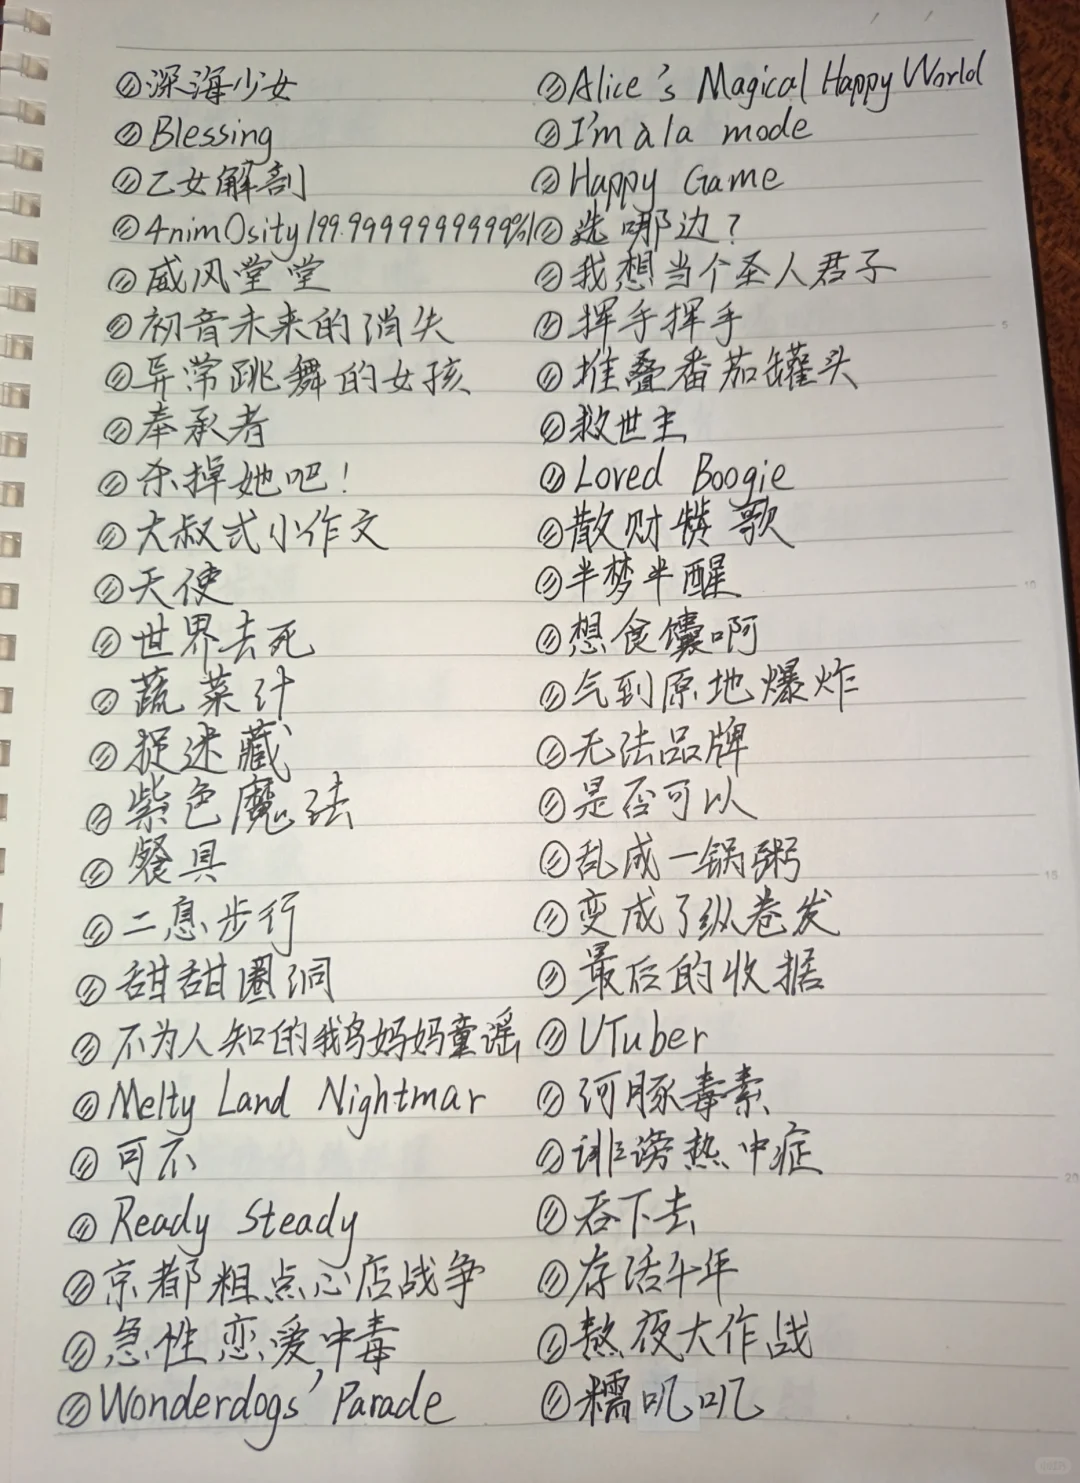 深海少女
Blessing
乙女解剖
4nim0sity199.9999999999999%
威风堂堂
初音未来的消失
异常跳舞的女孩
奉承者
杀掉她吧!
大叔式小作文
天使
世界去死
蔬菜汁
捉迷藏
紫色魔法
餐具
二息步行
甜甜圈洞
不为人知的鹅妈妈童谣
Melty Land Nightmar
可不
Ready Steady
京都粗点心店战争
急性恋爱中毒
Wonderdogs' Parade
Alice's Magical Happy World
I'm àla mode
Happy Game
选哪边?
我想当个圣人君子
挥手挥手
堆叠番茄罐头
救世主
Loved Boogie
散财赞歌
半梦半醒
想食馕啊
气到原地爆炸
无法品牌
是否可以
乱成一锅粥
变成了纵卷发
最后的收据
UTuber
河豚毒素
诽谤热中症
吞下去
存活千年
熬夜大作战
糯叽叽